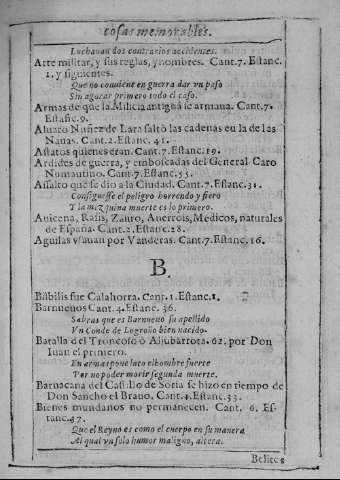 cosas memorables.
Luchauan dos contrarios accidentes.
Arte militar, y sus reglas, y nombres. Cant. 7. Estanc.
1. y siguientes.
Que no conuiene en guerra dar vn paso
Sin agotar primero todo el caso.
Armas de que la Milicia antigua se armaua. Cant. 7.
Estanc. 9.
Aluaro Nuñez de Lara saltò las cadenas en la de las
Nauas. Cant. 2. Estanc. 41.
Astatos quienes eran. Cant. 7. Estanc. 19.
Ardides de guerra, y emboscadas del General Caro
Numantino. Cant. 7. Estanc. 53.
Assalto que se dio a la Ciudad. Cant. 7. Estanc. 31.
Consiguesse el peligro horrendo y fiero
Y la mezquina muerte es lo primero.
Auicena, Rasis, Zauro, Auerrois, Medicos, naturales
de España. Cant. 2. Estanc. 28.
Aguilas vsauan por Vanderas. Cant. 7. Estanc. 16.
B.
Bilbilis fue Calahorra. Cant. 1. Estanc. 1.
Barnueuos Cant. 4. Estanc. 36.
Sabras que es Barnueuo su apellido
Vn Conde de Logroño bien nacido.
Batalla del Troncoso ò Aljubarrota. 62. por Don
Iuan el primero.
En armas pone luto el hombre fuerte
Por no poder morir segunda muerte.
Baruacana del Castillo de Soria se hizo en tiempo de
Don Sancho el Brauo. Cant. 4. Estanc. 33.
Bienes mundanos no permanecen. Cant. 6. Es-
tanc. 37.
Que el Reyno es como el cuerpo en su manera
Al qual vn solo humor maligno, altera.
Belites